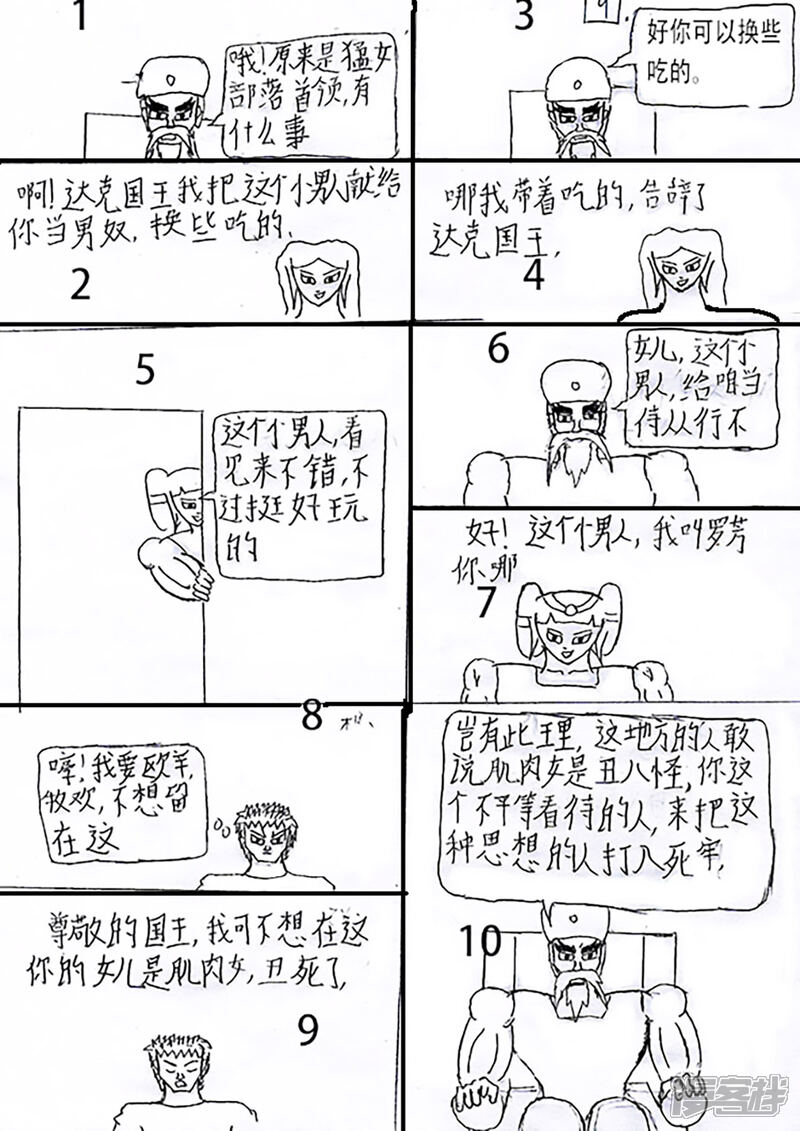 1
哦!原来是猛女
部落首领,有
什么事
啊!达克国王我把这个男人献给
你当男奴,换些吃的.
2
3
9
好你可以换些
吃的。
哪我带着吃的,告辞了
达克国王,
4
5
这个男人,看
见来不错,不
过挺好玩
的
6
女儿,这个
男人,给咱当
侍从行不
好!这个男人,我叫罗芳
你、哪
7
8
我要欧羊,
牧欢,不想留
在这
尊敬的国王,我可不想在这
你的女儿是肌肉女,丑死了,
9
岂有此王里,这地方的人敢
说肌肉女是丑八怪,你这
个不平等看待的人,来把这
种思想的人打入死牢,
10
漫客栈